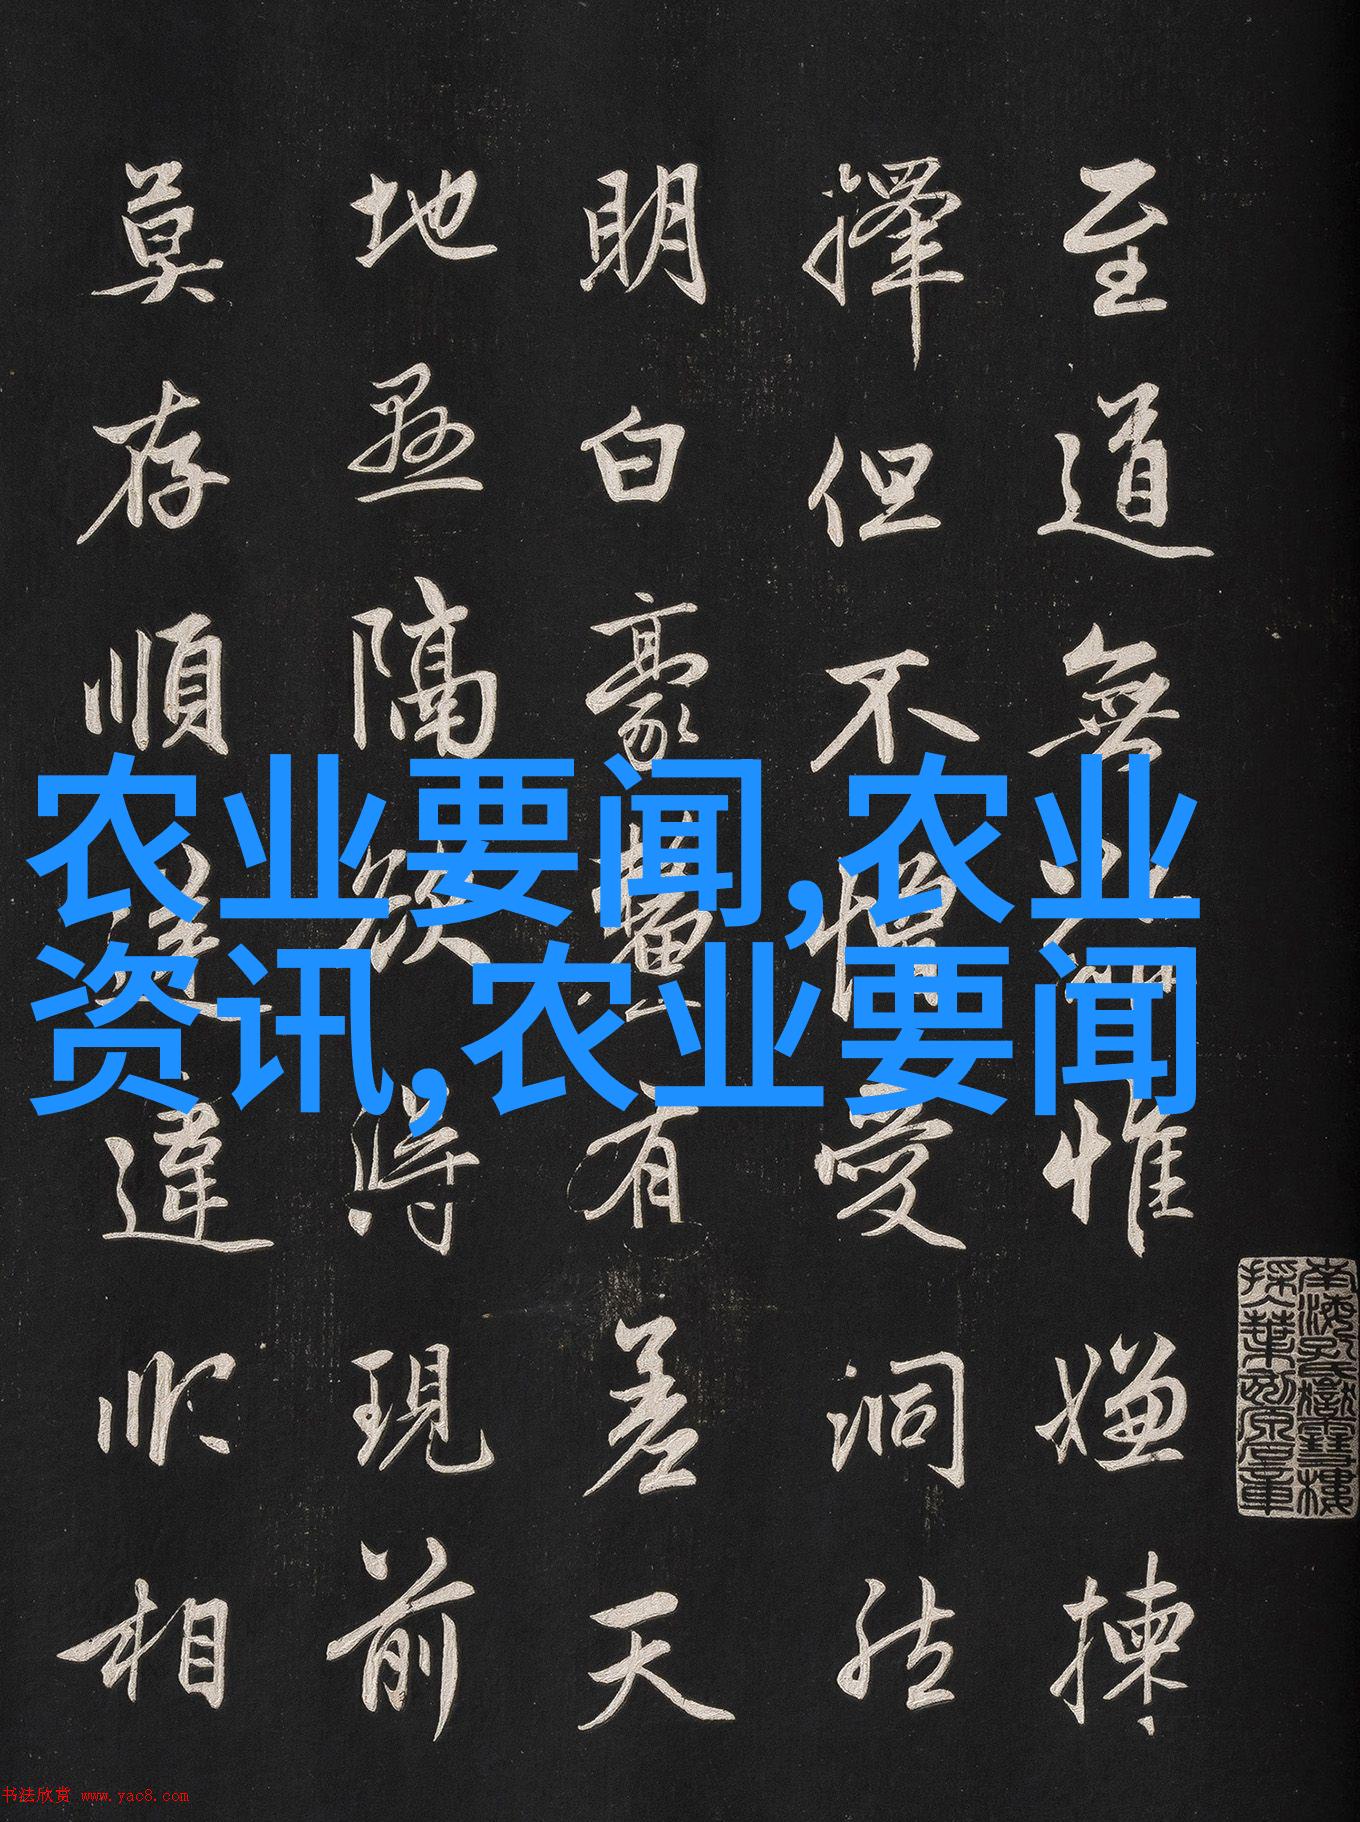 农业要闻,农业
资讯,农业要闻
至道無惟嫌揀
擇但不憎愛洞然
明白豪有差天
地懸隔欲得現前
莫存順逆違順相
书法欣赏 www.yac8.com